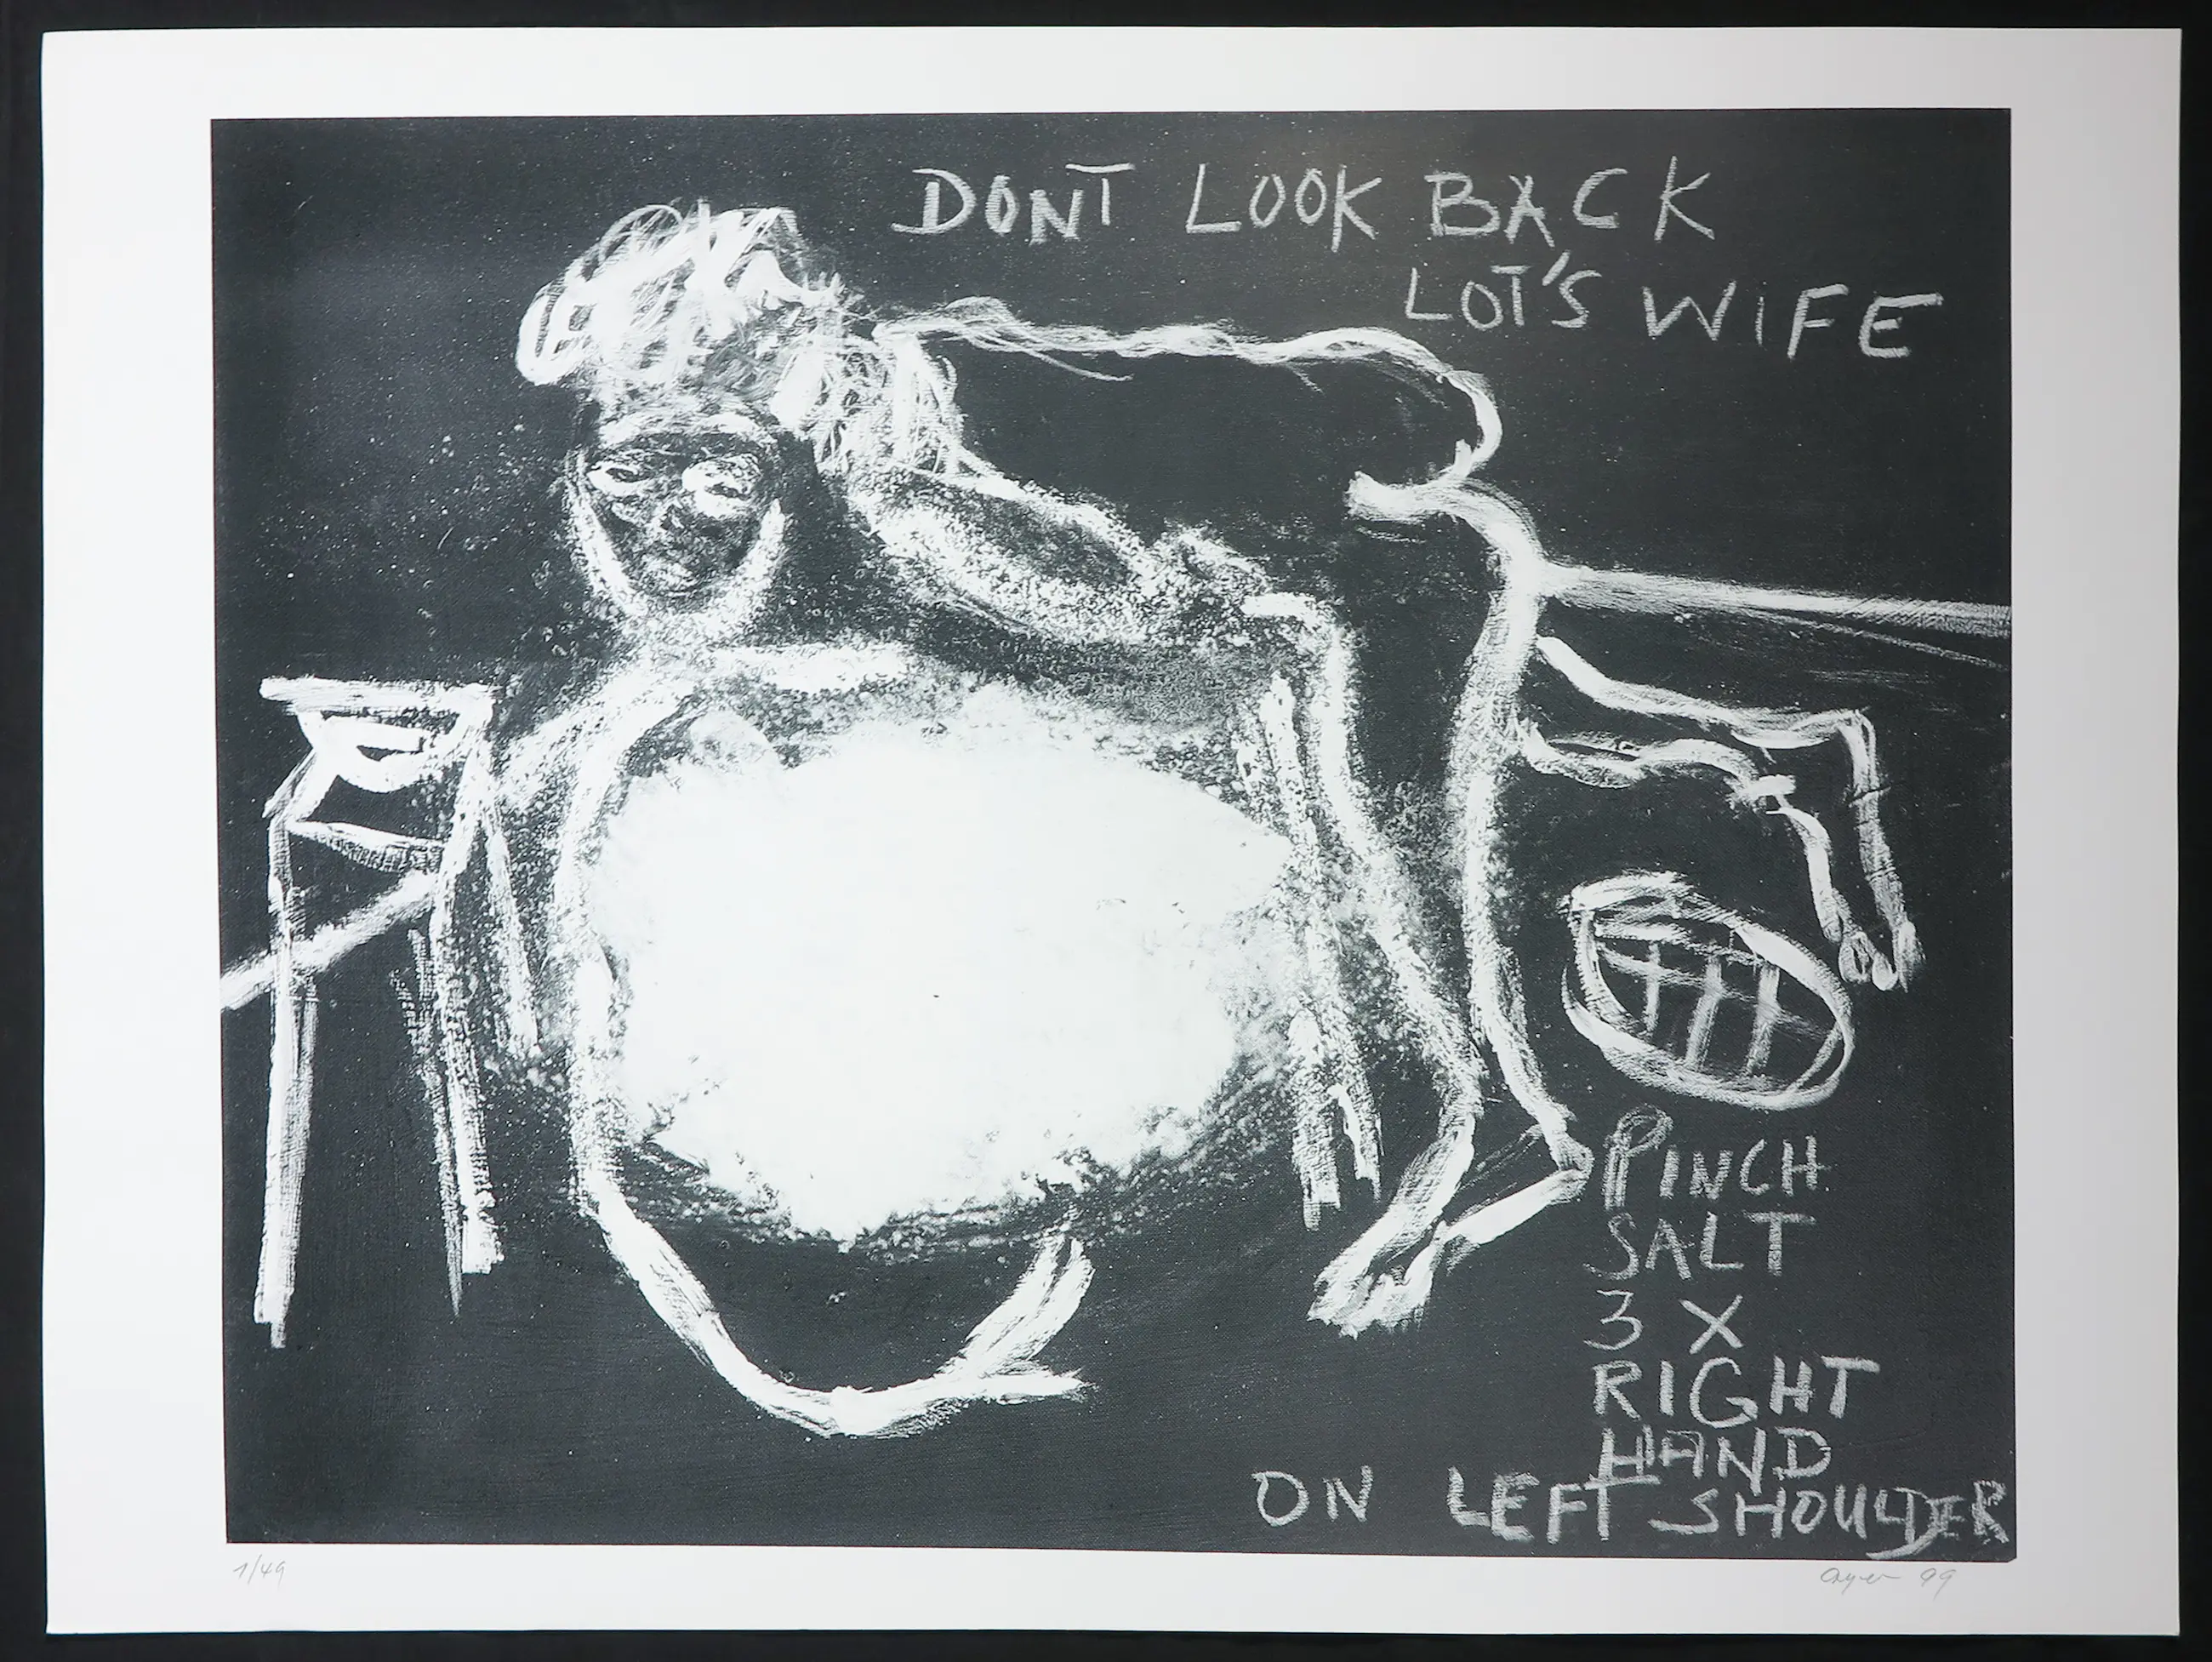 DONT LOOK BACK
LOT'S WIFE
PINCH
SALT
3 X
RIGHT
HAND
ON LEFT SHOULDER
1/49
99